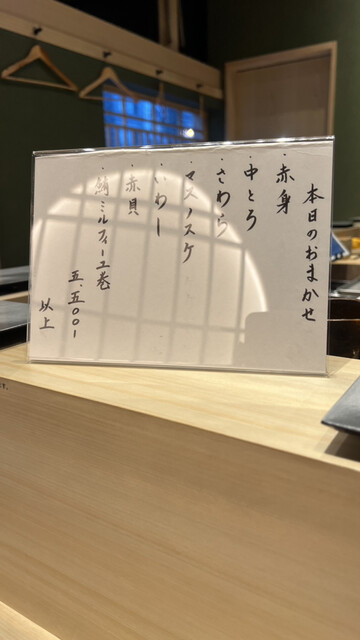 本日のおまかせ
・赤身
・中とろ
・さわら
・マスノスケ
・いわし
・赤貝
・鮪ミルフィーユ巻
五.五〇〇-
以上